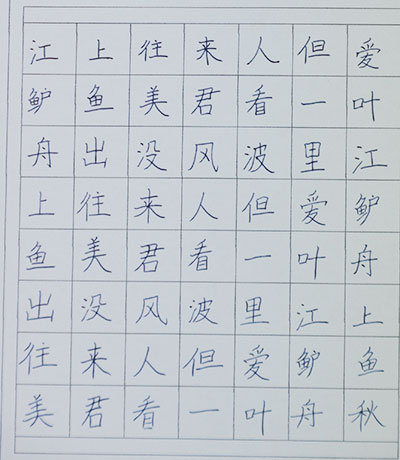 江上往来人但爱
鲈鱼美君看一叶
舟出没风波里江
上往来人但爱鲈
鱼美君看一叶舟
出没风波里江上
往来人但爱鲈鱼
美君看一叶舟秋